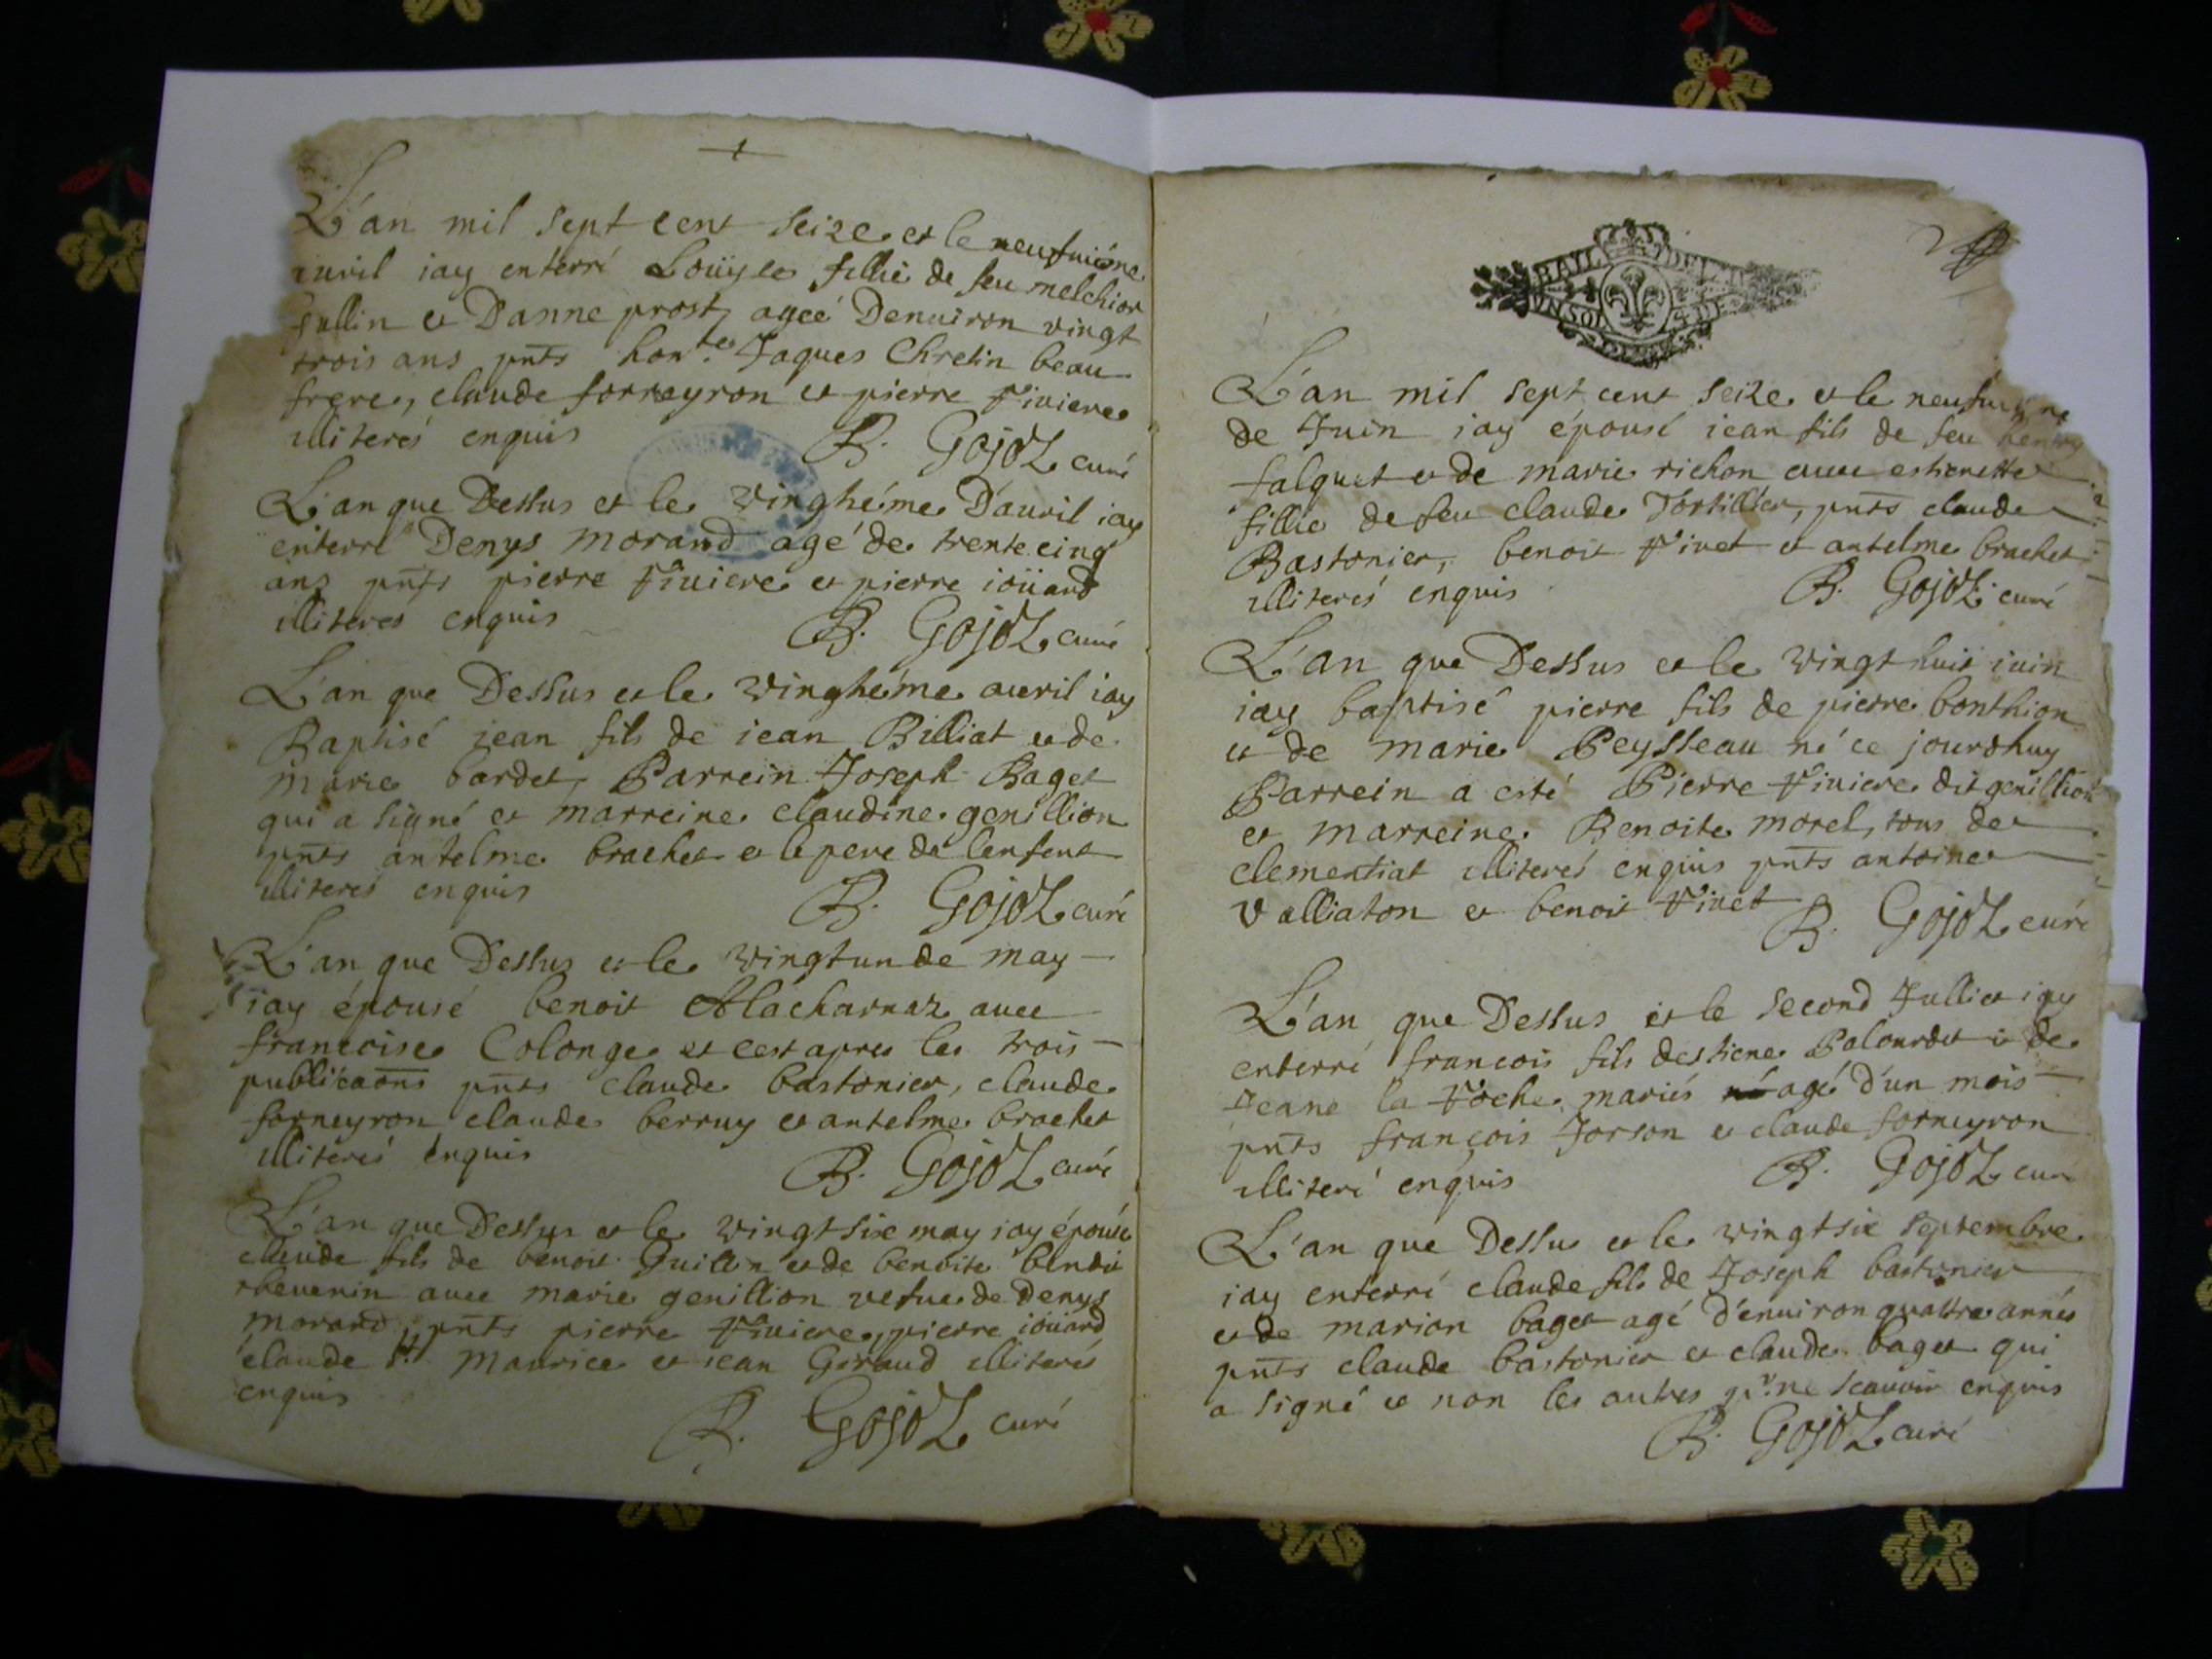 L'an mil sept cent seize et le neufuiéme
auril iay enterré Loüyse fillie de feu melchior
Jullin et D'anne prost, ageé Denuiron vingt
trois ans pnts hon.tes Jaques Chretin beau
frere, claude forneyron et pierre Viuiere
illiterés enquis
B. Gojoz curé
L'an que Dessus et le vinghéme D'auril iay
enterré Denys morand agé de trente cinq
ans pnts pierre Viuiere et pierre ioüard
illiterés enquis
B. Gojoz curé
L'an que Dessus et le vinghéme auril iay
Baptisé jean fils de iean Billiat et de
marie bardet, Parrein Joseph Baget
qui a signé et marreine claudine genillion
pnts antelme brachet et le pere de lenfent
illiterés enquis
B. Gojoz curé
L'an que Dessus et le vingtun de may
iay épousé benoit Macharnaz auec
francoise Colonge et cest apres les trois
publicaons pnts claude bastonier, claude
forneyron claude berruy et antelme brachet
illiterés enquis
B. Gojoz curé
L'an que Dessus et le vingtsix may iay épousé
claude fils de benoit Guillin et de benoite
theuenin auec marie genillion vefue de Denys
morand, pnts pierre Viuiere, pierre ioüard
claude St Maurice et iean Giraud illiterés
enquis
B. Gojoz curé
L'an mil sept cent seize et le neufuiéme
de Juin iay épousé iean fils de feu benoy
falquet et de marie richon auec estienette
fillie de feu claude Tortillier, pnts claude
Bastonier, benoit Viuet et antelme brachet
illiterés enquis
B. Gojoz curé
L'an que Dessus et le vingt huit iuin
iay baptisé pierre fils de pierre bonthion
et de marie Peysseau né ce jourdhuy
Parrein a esté Pierre Viuiere dit genillion
et marreine Benoite morel, tous de
clementiat illiterés enquis pnts antoine
Valliaton et benoit Viuet
B. Gojoz curé
L'an que Dessus et le second Jullet iay
enterré francois fils destiene Palourdet et de
Jeane la Roche mariés né agé d'un mois
pnts françois Jorson et claude forneyron
illiteré enquis
B. Gojoz curé
L'an que Dessu et le vingtsix septembre
iay enterré claude fils de Joseph bastonier
et de marion baget agé d'enuiron quattre annés
pnts claude bastonier et claude baget qui
a signé et non les autres pr. ne scauoir enquis
B. Gojoz curé